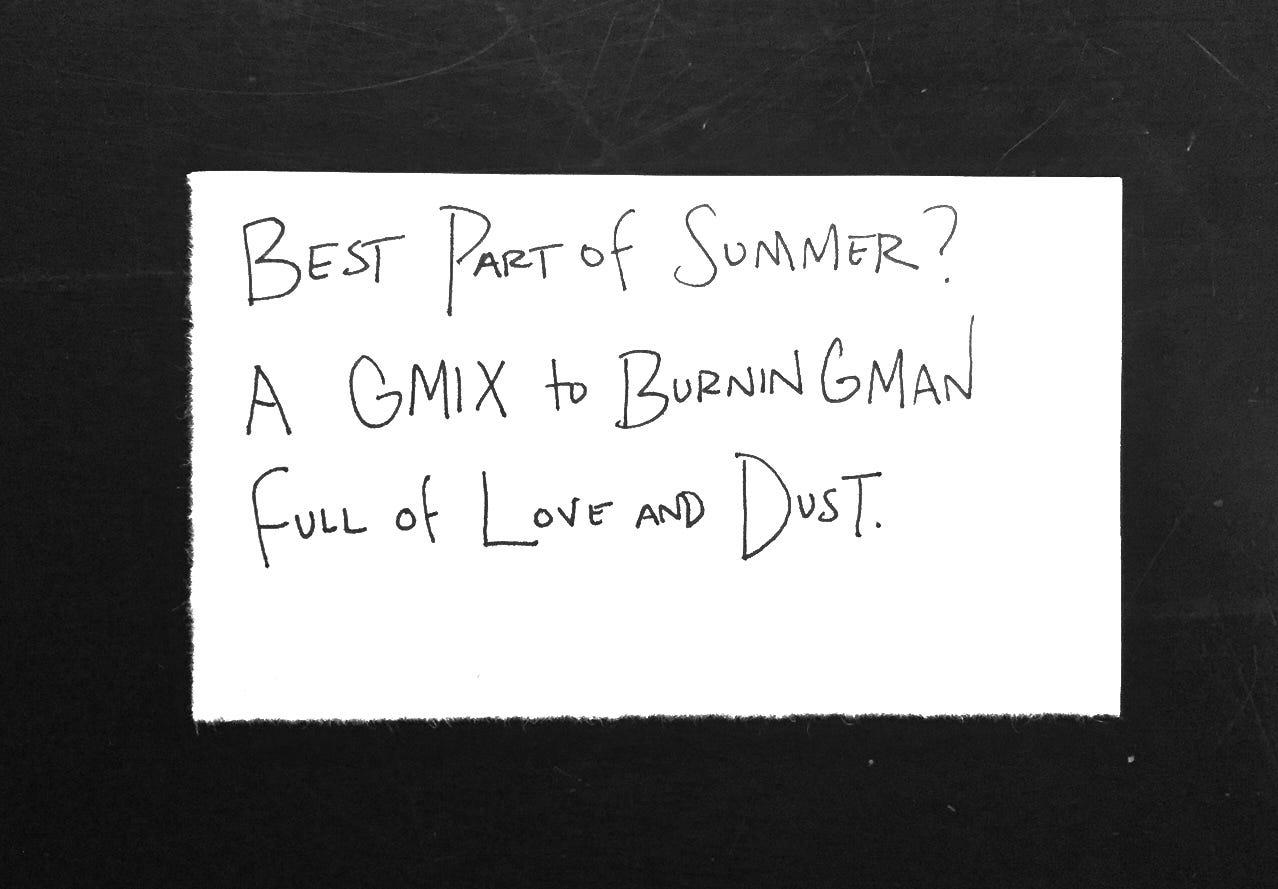 BEST PART OF SUMMER?
A GMIX to BURNINGMAN
FULL OF LOVE AND DUST.